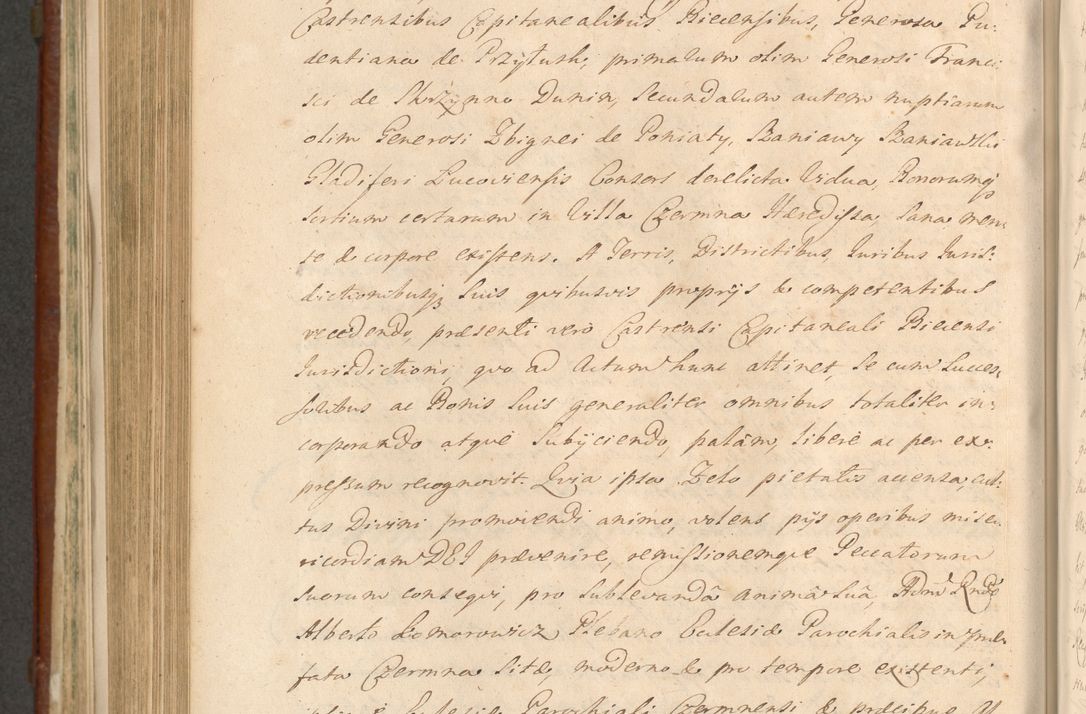 Castrensibus Capitanealibus Biecensibus, Generosa Pu:
dentiana de Przytuski, primarum olim Generosi Franci:
sci de Skrzynno Dunin, Secundarum autem nuptiarum
olim Generosi Zbignei de Poniaty, Szaniawy Szaniawski
Gladiferi Lucoviensis Consors derelicta Vidua, Bonorumqz
sortium certarum in Villa Czermna Hæredissa, Sana men:
te & corpore existens. A Terris, Districtibus, Juribus Juris:
dictionibusqz suis quibusvis proprijs & competentibus
recedendo, præsenti vero Castrensi Capitaneali Biecensi
Jurisdictioni, quo ad Actum hunc attinet, Se cum Succes:
soribus ac Bonis Suis generaliter omnibus totaliter in:
corporando atque Subijciendo, palam, libere ac per ex:
pressum recognovit. Quia ipsa Zelo pietatis accensa, cul:
tus Divini promovendi animo, volens pijs operibus mise:
ricordiam DEI prævenire, remissionemque Peccatorum
suorum consequi, pro sublevandâ animâ Suâ, Admd Rndo
Alberto Komorowicz Plebano Ecclesiæ Parochialis in præ:
fata Czermna Sitæ, moderno & pro tempore existenti,
Ecclesiæ Parochiali Czermnensi & præcibus